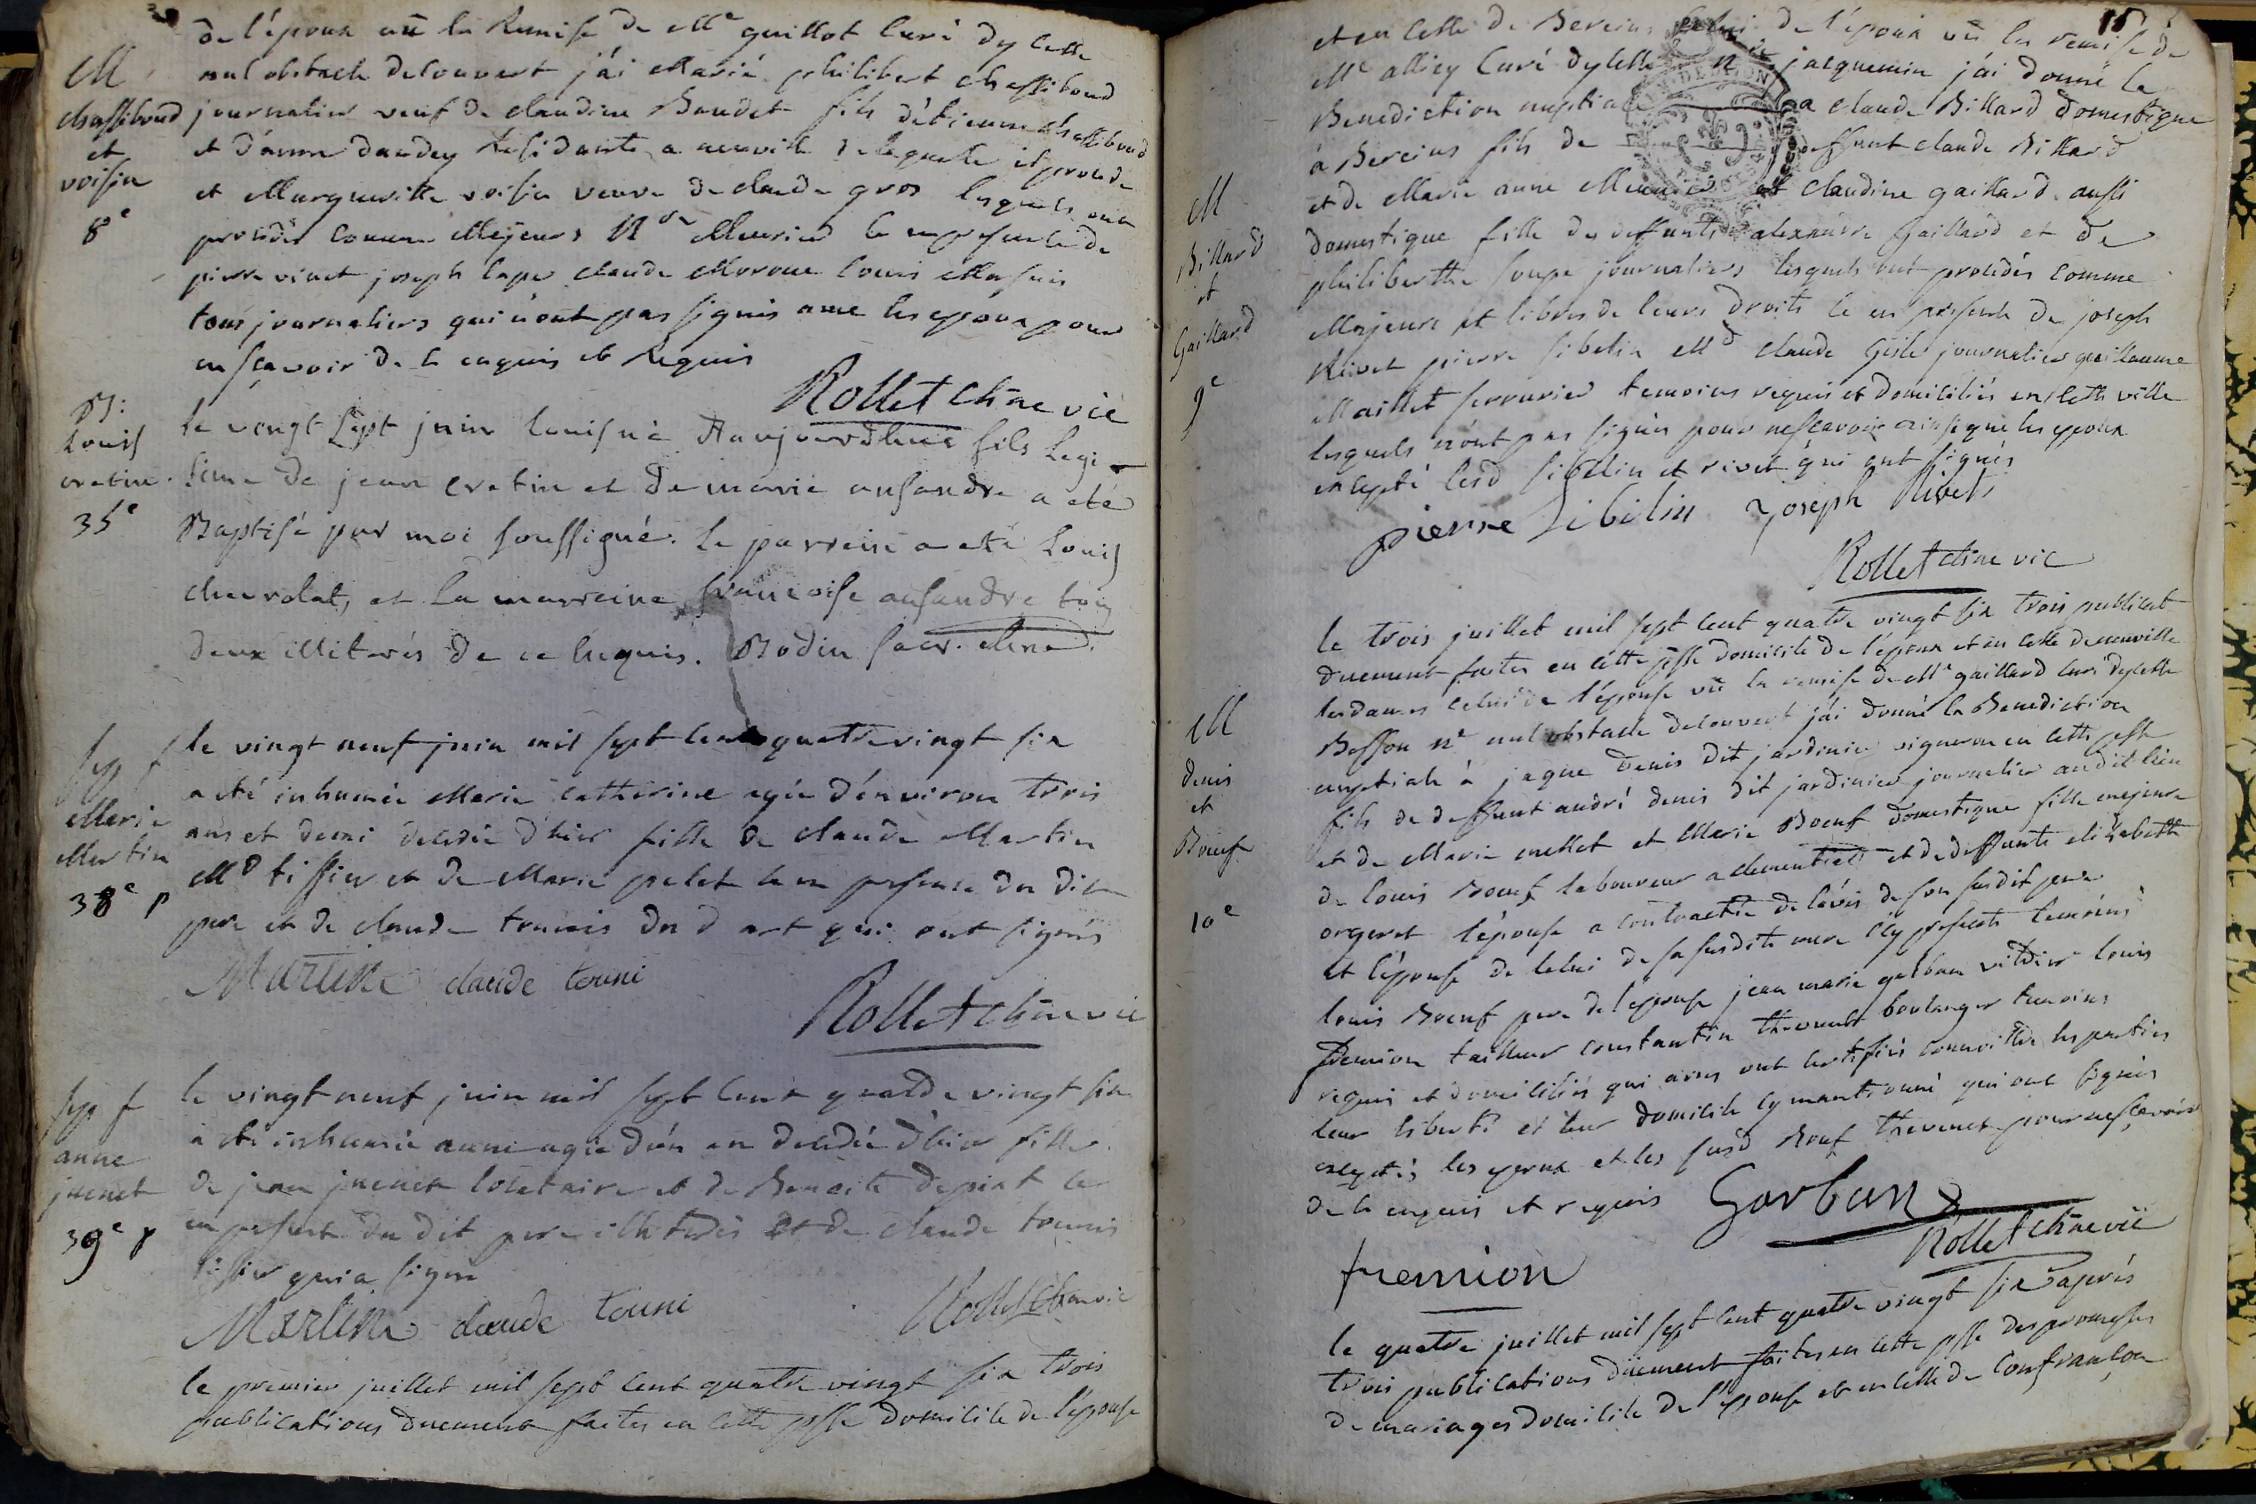 de l'epoux vû la Remise de Mr guillot Curé dycelle
nul obstacle decouvert j'ai Marié philibert chassiboud
journalier veuf de claudine Baudet fils d'etienne chassiboud
et d'anne daudey Residante a neuville de laquelle il procede
et Marguerite voisin veuve de claude gros lesquels ont
procédés comme Majeurs le en presence de
pierre vinet joseph claude Morone louis
tous journaliers qui n'ont pas signés avec les epoux pour
ne sçavoir de ce enquis et Requis
Rollet chne vic
M
chassiboud
et
voisin
8e
B:
Louis
cretin
35e
le vingt Sept juin louis né Aujourdhuié fils Legi
time de jean cretin et de marie ausandre a eté
Baptisé par moi soussigné. le parrein a eté Louis
chevrolat, et La marreine francoise ausandre tous
deux illiterés de ce Enquis. Bodin
sep f
Marie
Martin
38e p
le vingt neuf juin mil sept cent quatre vingt six
a été inhumée Marie Catherine agée d'environ trois
ans et demi decedée d'hier fille de claude Martin
Md tissier et de Marie pelet le en presence du dit
pere et de claude tounis du d art qui ont signés
Martin claude touni
Rollet chne vic
sep f
anne
juenet
39e p
le vingt neuf juin mil sept cent quatre vingt six
a été inhumée anne agée d'un an decedée d'hier fille
de jean juenet locataire et de Benoite depirat le
en presence du dit pere illiterés et de claude tounis
tissier qui a signé
Martin claude touni
Rollet chne vic
le premier juillet mil sept cent quatre vingt six trois
publications duement faites en cette psse domicile de l'epouse
15
et en celle de Bereins celui de l'époux vû la remise de
Mr alliey Curé dycelle jacquemin j'ai donné la
Benediction nuptiale a claude Billard domestique
à Bereins fils de deffunt claude Billard
et de Marie anne et claudine gaillard aussi
domestique fille des deffunts alexandre Gaillard et de
philiberthe soupe journaliers lesquels ont procédés comme
Majeurs et libres de leurs droits le en presence de joseph
Rivet pierre sibelin Md claude journalier guillaume
Maillet serrurier temoins requis et domiciliés en cette ville
lesquels n'ont pas signés pour ne sçavoir ainsi que les epoux
excepté lesd sibelin et rivet qui ont signés
pierre Sibelin joseph Rivet
Rollet chne vic
M
Billard
et
Gaillard
9e
le trois juillet mil sept cent quatre vingt six trois publicat
duement faites en cette psse domicile de l'époux et en celle de neuville
les dames celui de l'épouse vû la remise de Mr gaillard curé dycelle
nul obstacle decouvert j'ai donné la Benediction
nuptiale à jaque Denis dit jardinier vigneron en cette psse
fils de deffunt andré denis dit jardinier journalier audit lieu
et de Marie mellet et Marie Boeuf domestique fille mejeure
de louis Boeuf laboureur a et de deffunte elizabeth
orgeret l'épouse a contractée de l'avis de son susdit pere
et l'épouse de celui de sa susdite mere Cy presents temoins
louis Boeuf pere de l'epouse jean marie garban louis
fremion tailleur constantin thevenet boulanger temoins
requis et domiciliés qui nous ont certifiés connoitre les parties
leur liberté et leur domicile cy mantionné qui ont signés
exceptés les epoux et les susd Boeuf thevenet pour ne sçavoir
de ce enquis et requis Garban
Rollet chne vic
fremion
M
Denis
et
Boeuf
10e
le quatre juillet mil sept cent quatre vingt six après
trois publications duement faites en cette psse des promesses
de mariages domicile de l'epouse et en celle de Confrançon